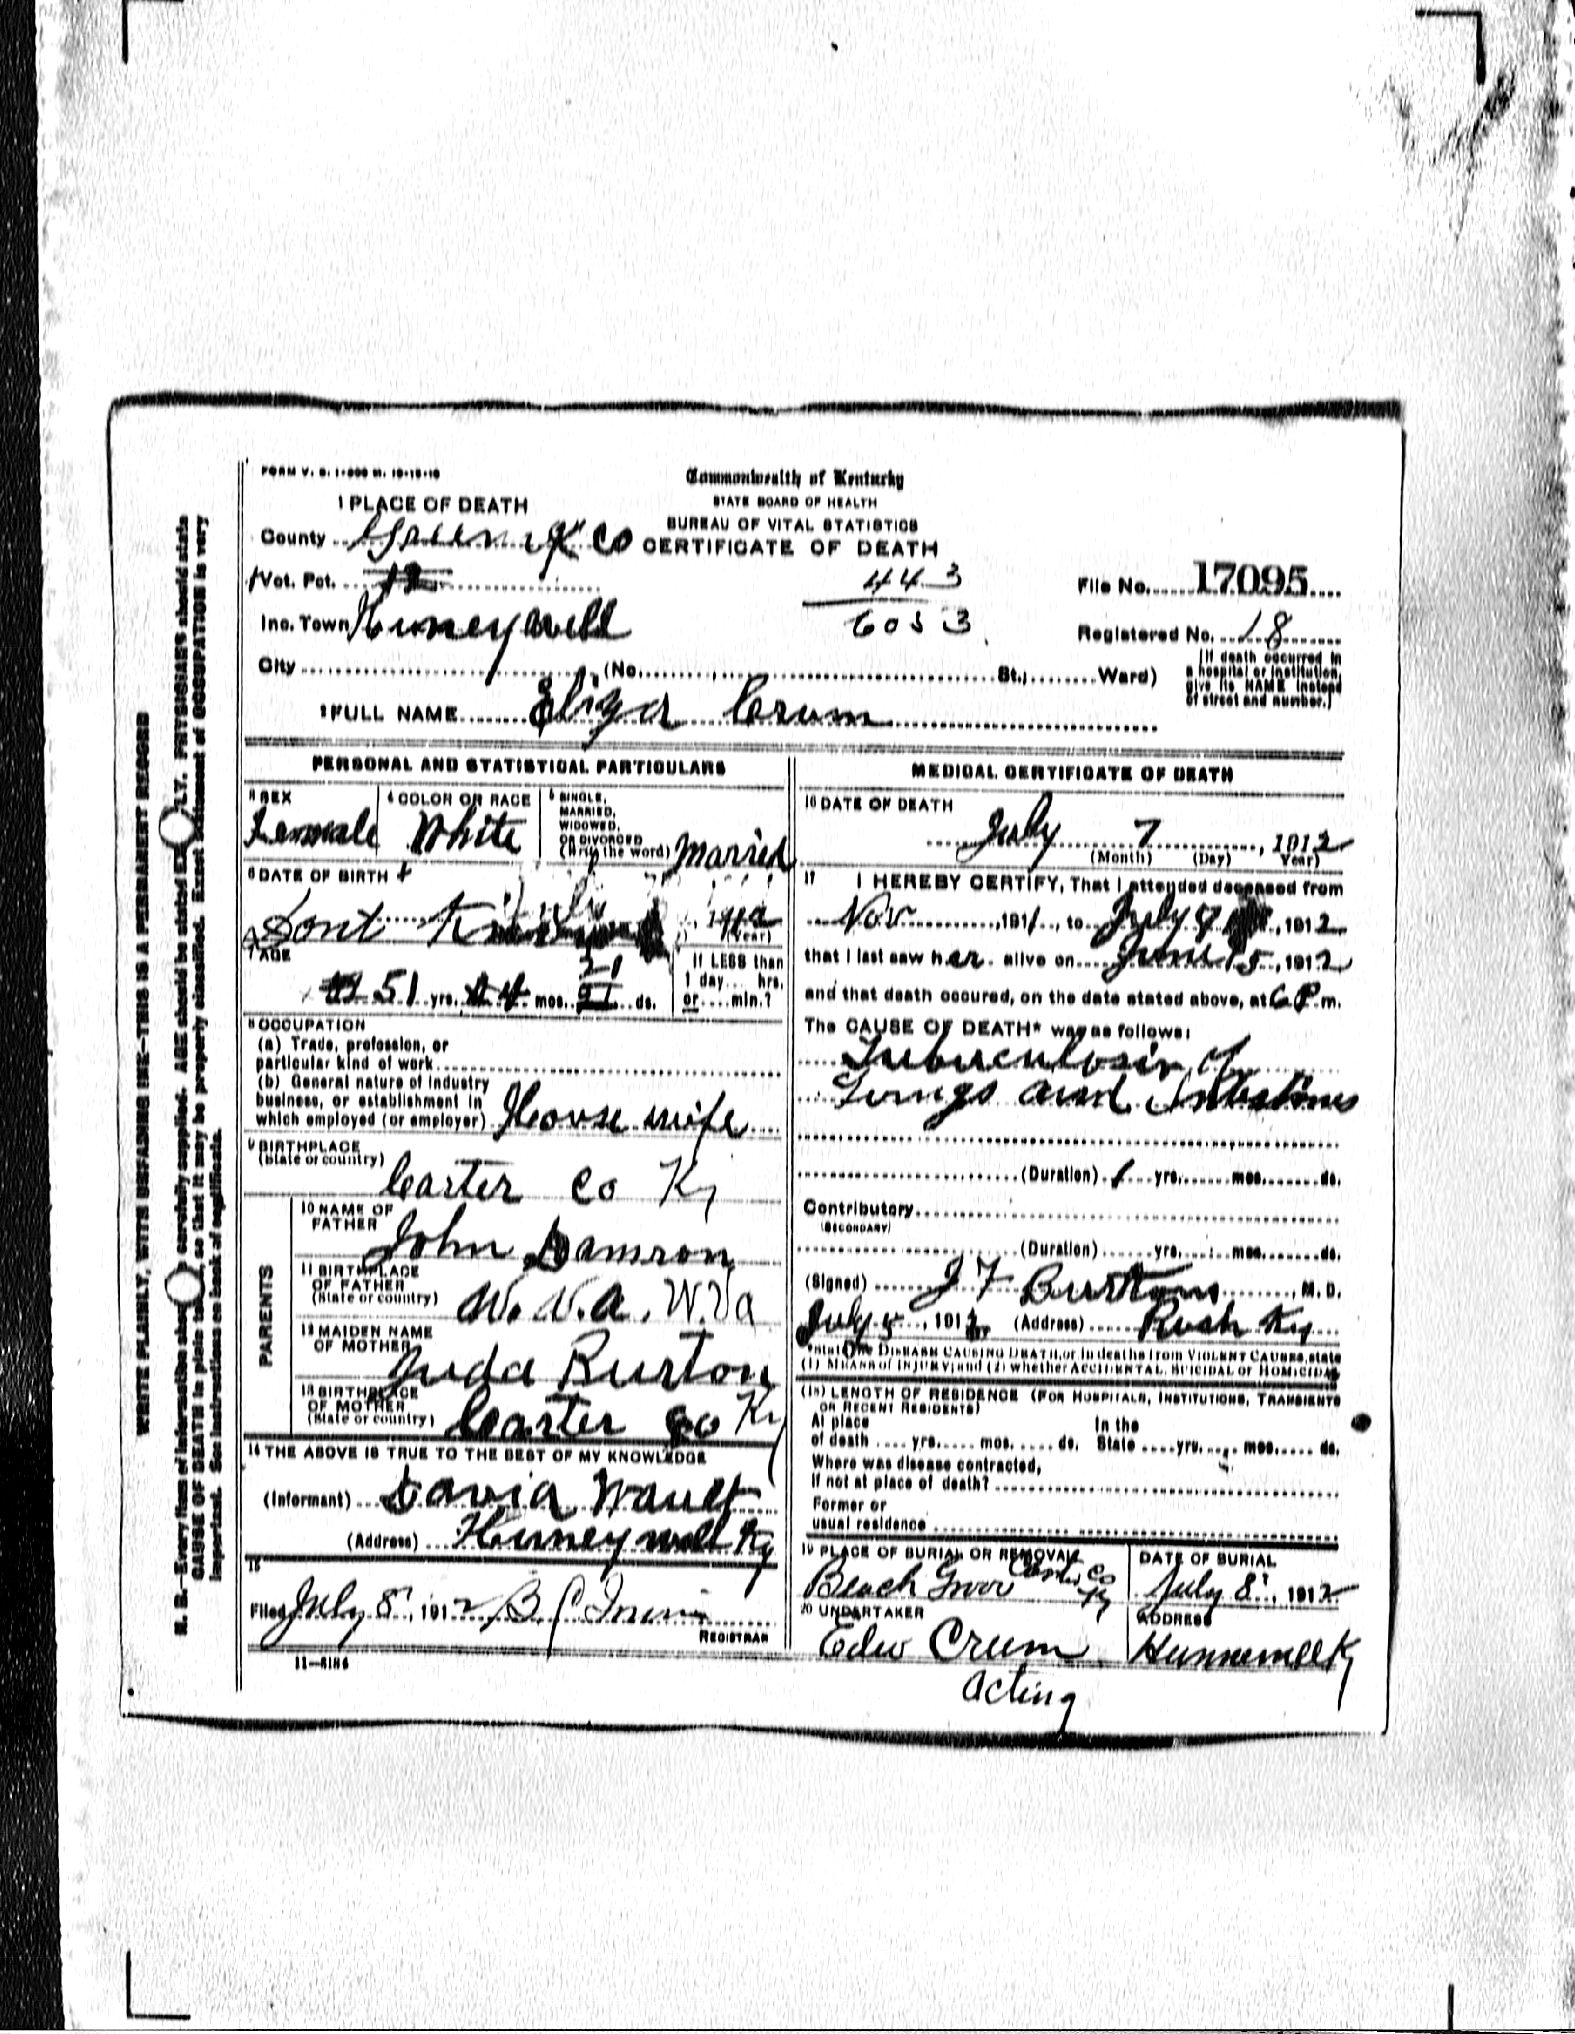 FORM V. S. 1-500 M. 12-12-10
Commonwealth of Kentucky
STATE BOARD OF HEALTH
BUREAU OF VITAL STATISTICS
CERTIFICATE OF DEATH
1 PLACE OF DEATH
County Co
Vot. Pct. 12
443
6053
File No. 17095
Inc. Town
Registered No. 18
City (No. St.; Ward)
(If death occurred in
a hospital or institution,
give its NAME instead
of street and number.)
2 FULL NAME Eliza Crum
PERSONAL AND STATISTICAL PARTICULARS
3 SEX
Female
4 COLOR OR RACE
White
5 SINGLE,
MARRIED,
WIDOWED,
OR DIVORCED
(Write the word) Married
6 DATE OF BIRTH
Dont
(Year)
7 AGE
51 yrs. 4 mos. 21 ds.
If LESS than
1 day hrs.
or min.?
8 OCCUPATION
(a) Trade, profession, or
particular kind of work
(b) General nature of industry
business, or establishment in
which employed (or employer) House wife
9 BIRTHPLACE
(State or country)
Carter Co Ky
PARENTS
10 NAME OF
FATHER
John Damron
11 BIRTHPLACE
OF FATHER
(State or country) W.V.a. W.Va
12 MAIDEN NAME
OF MOTHER
Juda Burton
13 BIRTHPLACE
OF MOTHER
(State or country) Carter Co Ky
14 THE ABOVE IS TRUE TO THE BEST OF MY KNOWLEDGE
(Informant) David
(Address) Ky
15
Filed July 8, 1912
REGISTRAR
MEDICAL CERTIFICATE OF DEATH
16 DATE OF DEATH
July 7, 1912
(Month) (Day) Year)
17 I HEREBY CERTIFY, That I attended deceased from
Nov, 1911, to July, 1912
that I last saw her alive on June 15, 1912
and that death occured, on the date stated above, at 6 P. m.
The CAUSE OF DEATH* was as follows:
Tuberculosis of
Lungs and Intestines
(Duration) 1 yrs. mos. ds.
Contributory
(SECONDARY)
(Duration) yrs. mos. ds.
(Signed) J F Burton, M. D.
July, 1912 (Address) Rush Ky
*State the DISEASE CAUSING DEATH, or in deaths from VIOLENT CAUSES, state
(1) MEANS of INJURY; and (2) whether ACCIDENTAL, SUICIDAL or HOMICIDAL
(18) LENGTH OF RESIDENCE (FOR HOSPITALS, INSTITUTIONS, TRANSIENTS
OR RECENT RESIDENTS)
At place In the
of death yrs. mos. ds. State yrs. mos. ds.
Where was disease contracted,
If not at place of death?
Former or
usual residence
19 PLACE OF BURIAL OR REMOVAL
Beach Grov Carter Co
Ky
DATE OF BURIAL
July 8, 1912
20 UNDERTAKER
Edw Crum
acting
ADDRESS
Hunnewell Ky
WRITE PLAINLY, WITH UNFADING INK—THIS IS A PERMANENT RECORD
N. B.—Every item of information should be carefully supplied. AGE should be stated EXACTLY. PHYSICIANS should state
CAUSE OF DEATH in plain terms, so that it may be properly classified. Exact statement of OCCUPATION is very
important. See instructions on back of certificate.